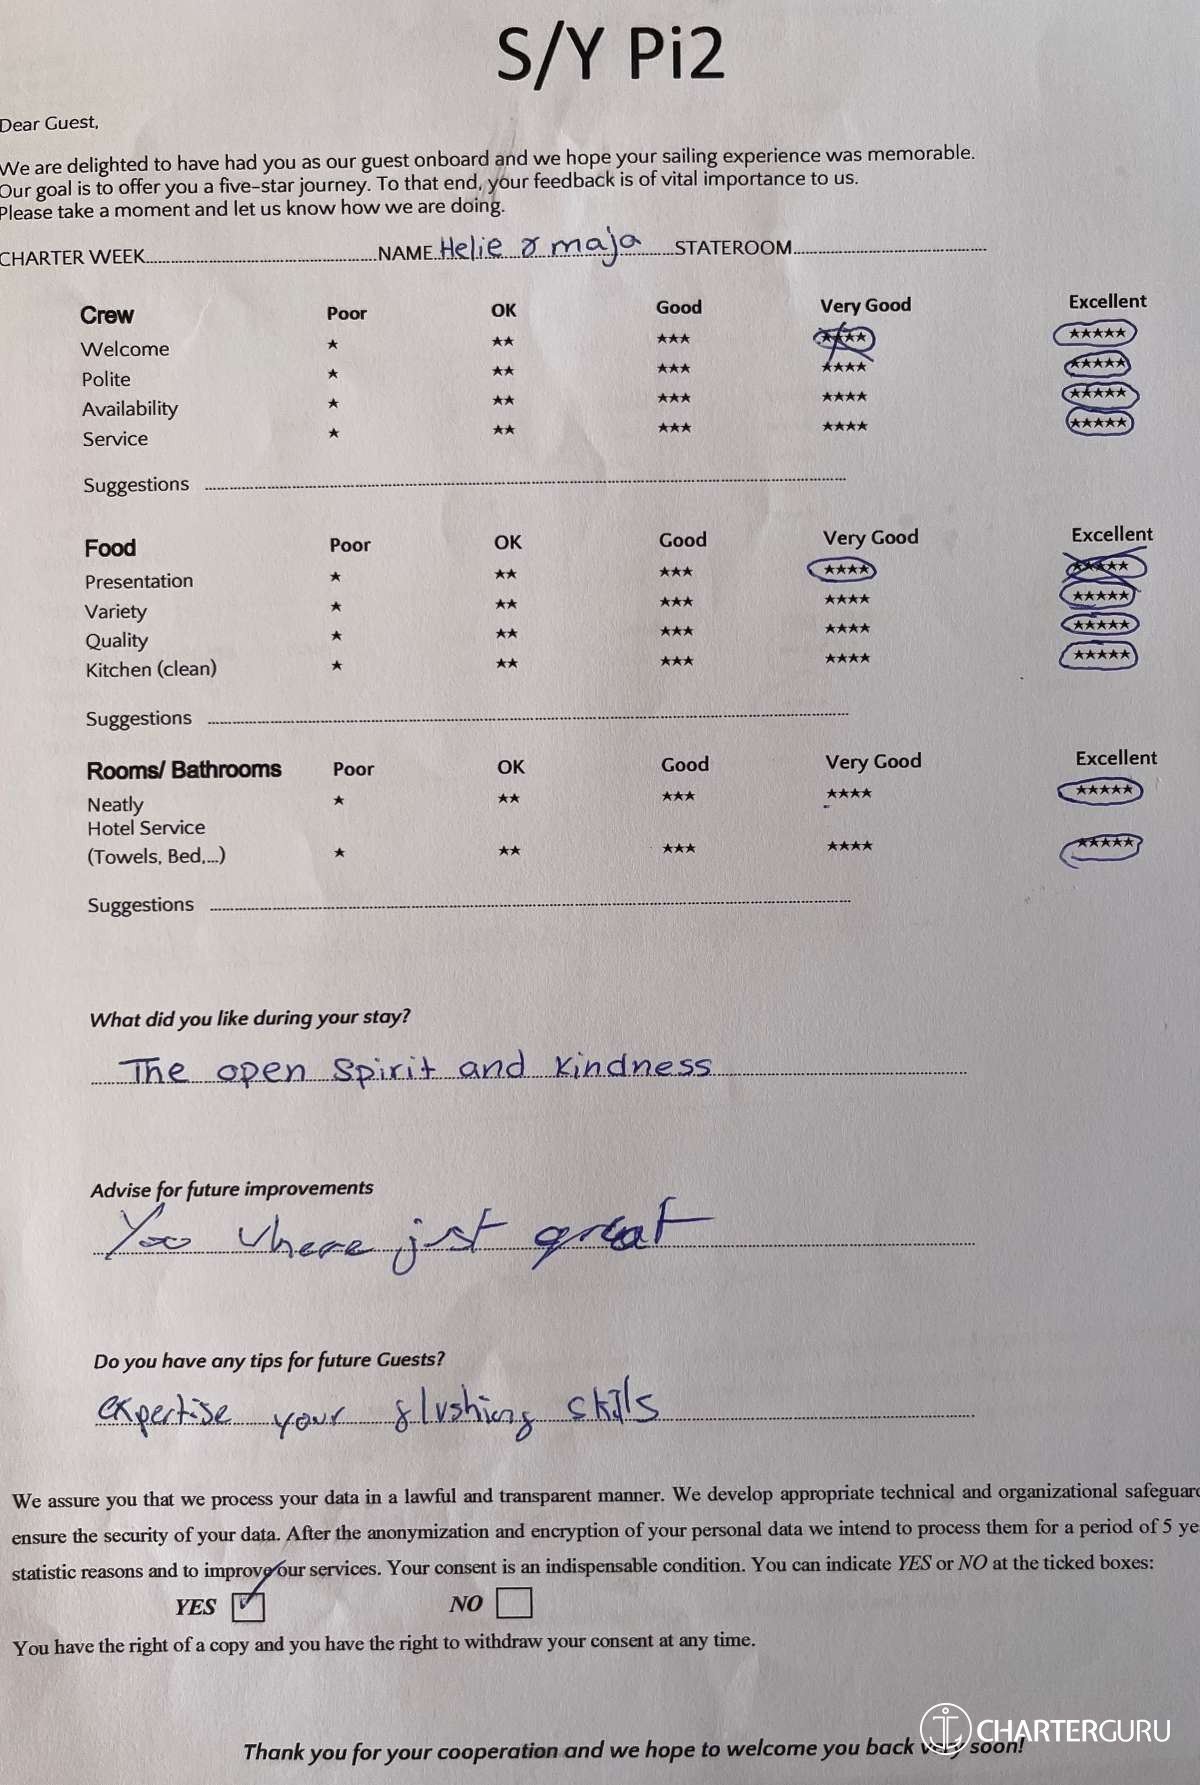 S/Y Pi2
Dear Guest,
We are delighted to have had you as our guest onboard and we hope your sailing experience was memorable.
Our goal is to offer you a five-star journey. To that end, your feedback is of vital importance to us.
Please take a moment and let us know how we are doing.
CHARTER WEEK NAME Helie & maja STATEROOM
Crew Poor OK Good Very Good Excellent
Welcome ★ ★★ ★★★ ★★★★ ★★★★★
Polite ★ ★★ ★★★ ★★★★ ★★★★★
Availability ★ ★★ ★★★ ★★★★ ★★★★★
Service ★ ★★ ★★★ ★★★★ ★★★★★
Suggestions
Food Poor OK Good Very Good Excellent
Presentation ★ ★★ ★★★ ★★★★ ★★★★★
Variety ★ ★★ ★★★ ★★★★ ★★★★★
Quality ★ ★★ ★★★ ★★★★ ★★★★★
Kitchen (clean) ★ ★★ ★★★ ★★★★ ★★★★★
Suggestions
Rooms/ Bathrooms Poor OK Good Very Good Excellent
Neatly ★ ★★ ★★★ ★★★★ ★★★★★
Hotel Service
(Towels, Bed,...) ★ ★★ ★★★ ★★★★ ★★★★★
Suggestions
What did you like during your stay?
The open spirit and kindness
Advise for future improvements
You where just great
Do you have any tips for future Guests?
expertise your flushing skills
We assure you that we process your data in a lawful and transparent manner. We develop appropriate technical and organizational safeguar
ensure the security of your data. After the anonymization and encryption of your personal data we intend to process them for a period of 5 ye
statistic reasons and to improve our services. Your consent is an indispensable condition. You can indicate YES or NO at the ticked boxes:
YES NO
You have the right of a copy and you have the right to withdraw your consent at any time.
CHARTERGURU
Thank you for your cooperation and we hope to welcome you back very soon!